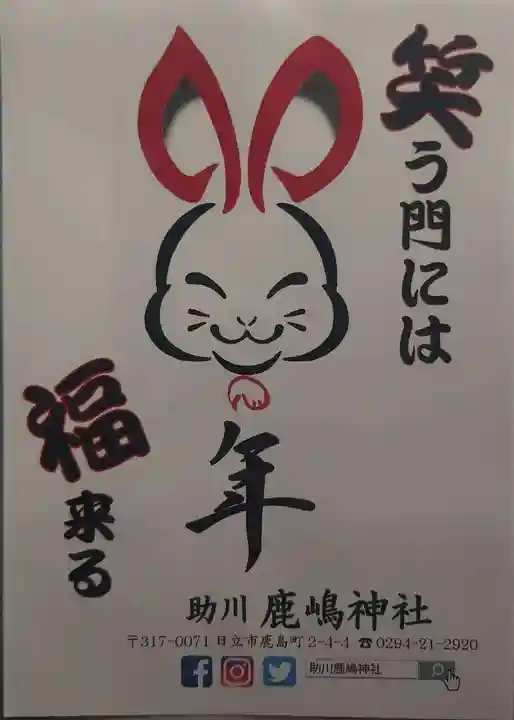 笑う門には
福来る
年
助川 鹿嶋神社
〒317-0071 日立市鹿島町2-4-4 ☎0294-21-2920
助川鹿嶋神社